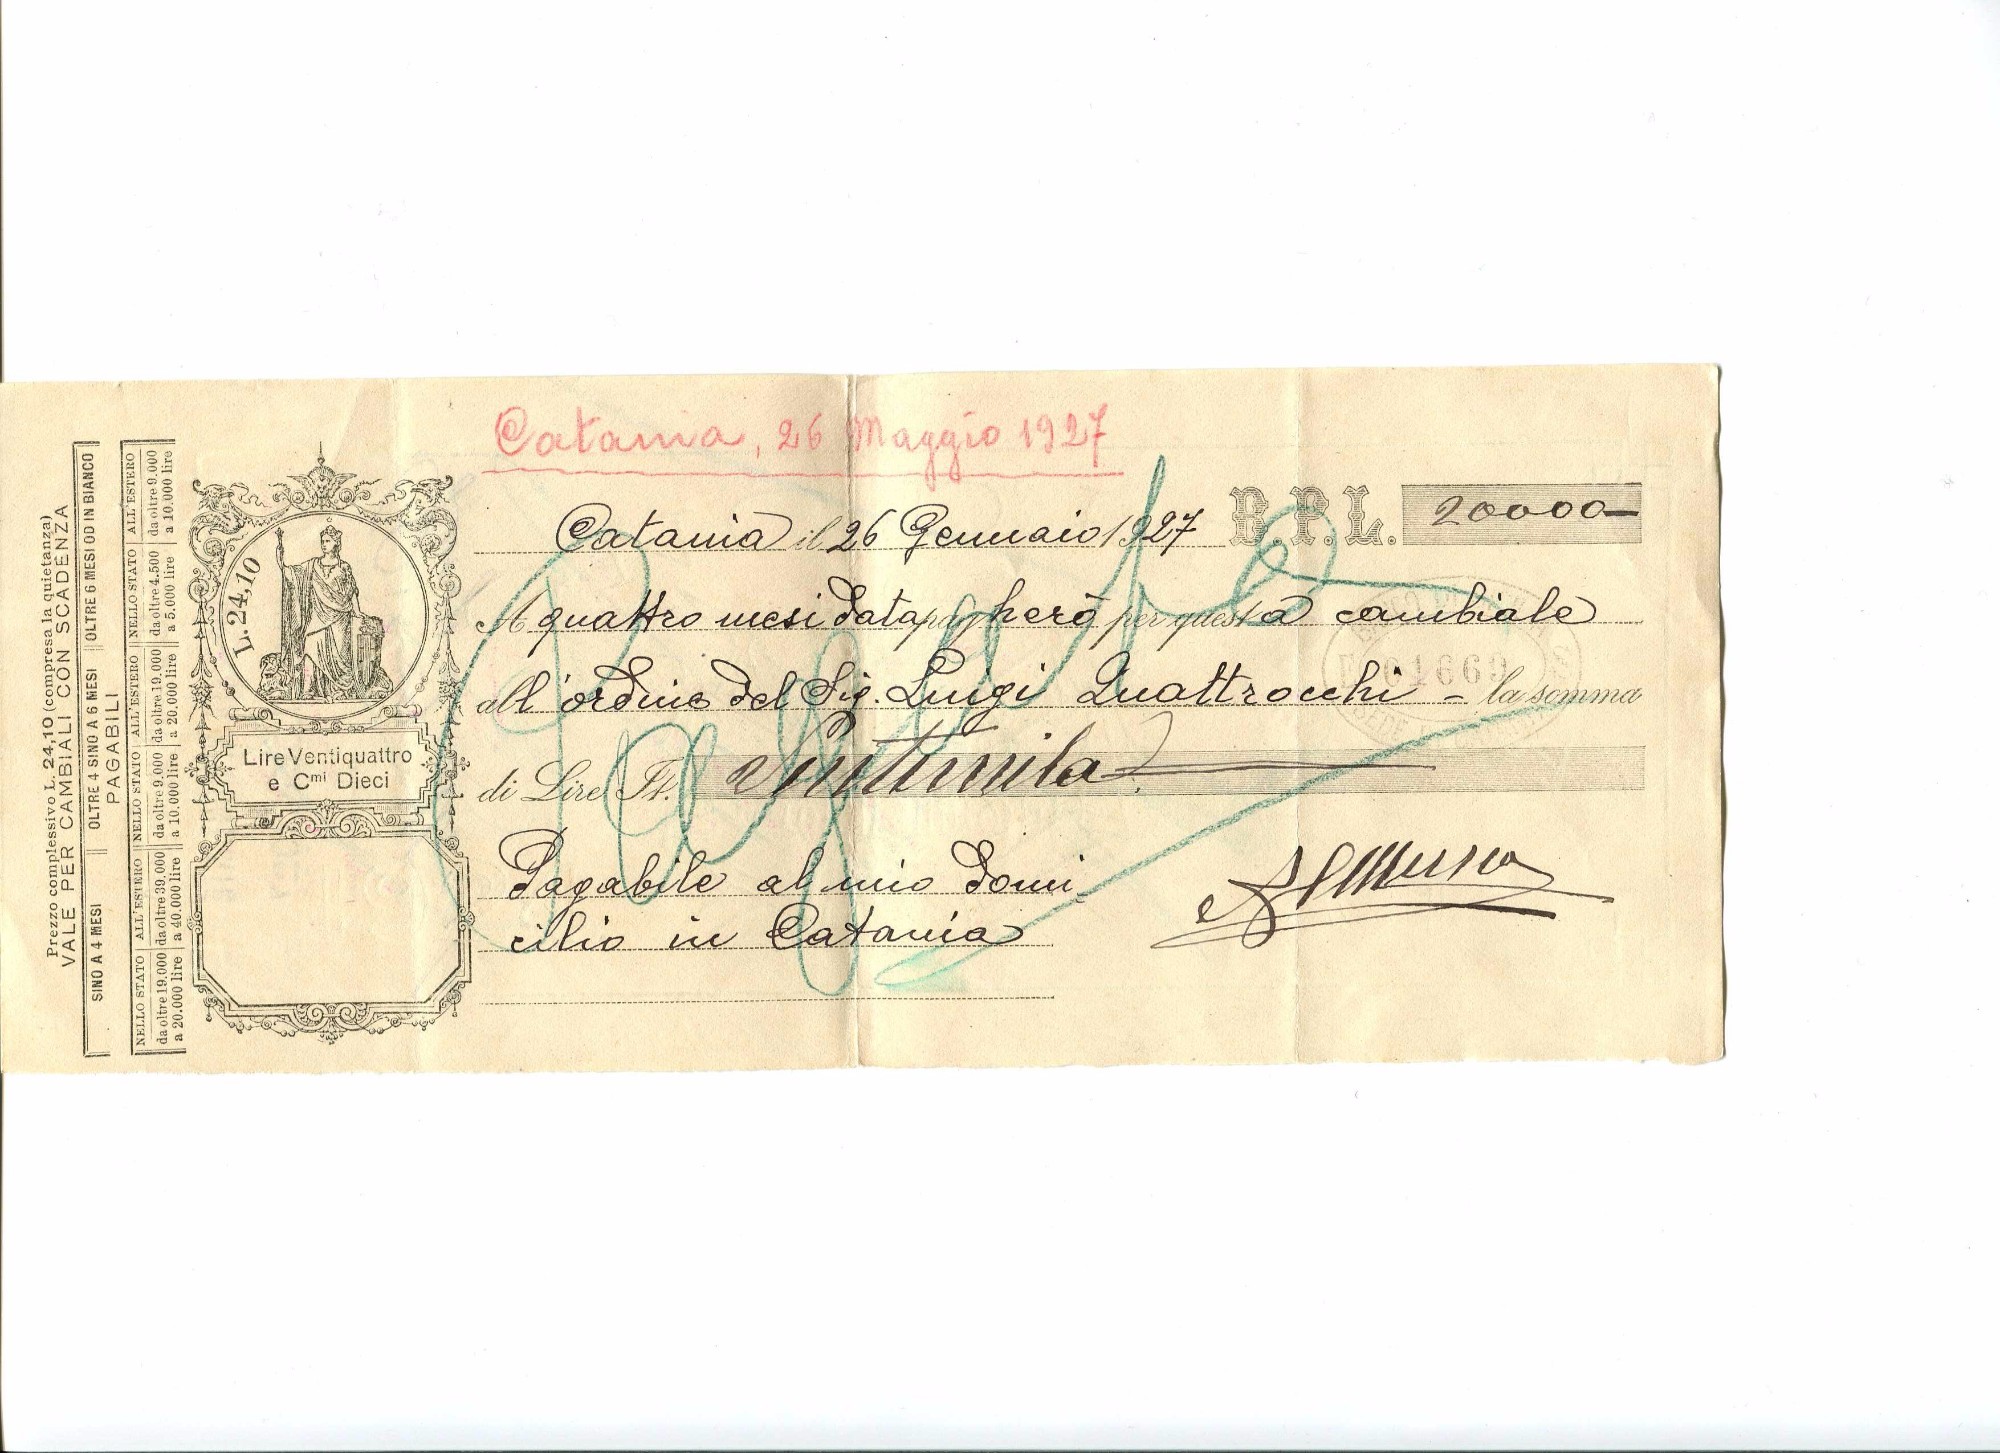 Prezzo complessivo L. 24,10 (compresa la quietanza)
VALE PER CAMBIALI CON SCADENZA
SINO A 4 MESI OLTRE 4 SINO A 6 MESI OLTRE 6 MESI OD IN BIANCO
PAGABILI
NELLO STATO ALL'ESTERO NELLO STATO ALL'ESTERO NELLO STATO ALL'ESTERO
da oltre 19.000 da oltre 39.000 da oltre 9.000 da oltre 19.000 da oltre 4.500 da oltre 9.000
a 20.000 lire a 40.000 lire a 10.000 lire a 20.000 lire a 5.000 lire a 10.000 lire
L. 24,10
Lire Ventiquattro
e Cmi Dieci
Catania, 26 Maggio 1927
Catania il 26 Gennaio 1927 B.P.L. 20000
A quattro mesi data pagherò per questa cambiale
all'ordine del Sig. Luigi Quattrocchi la somma
di Lire It. Ventimila
Pagabile al mio domi
cilio in Catania
Pagato
01669